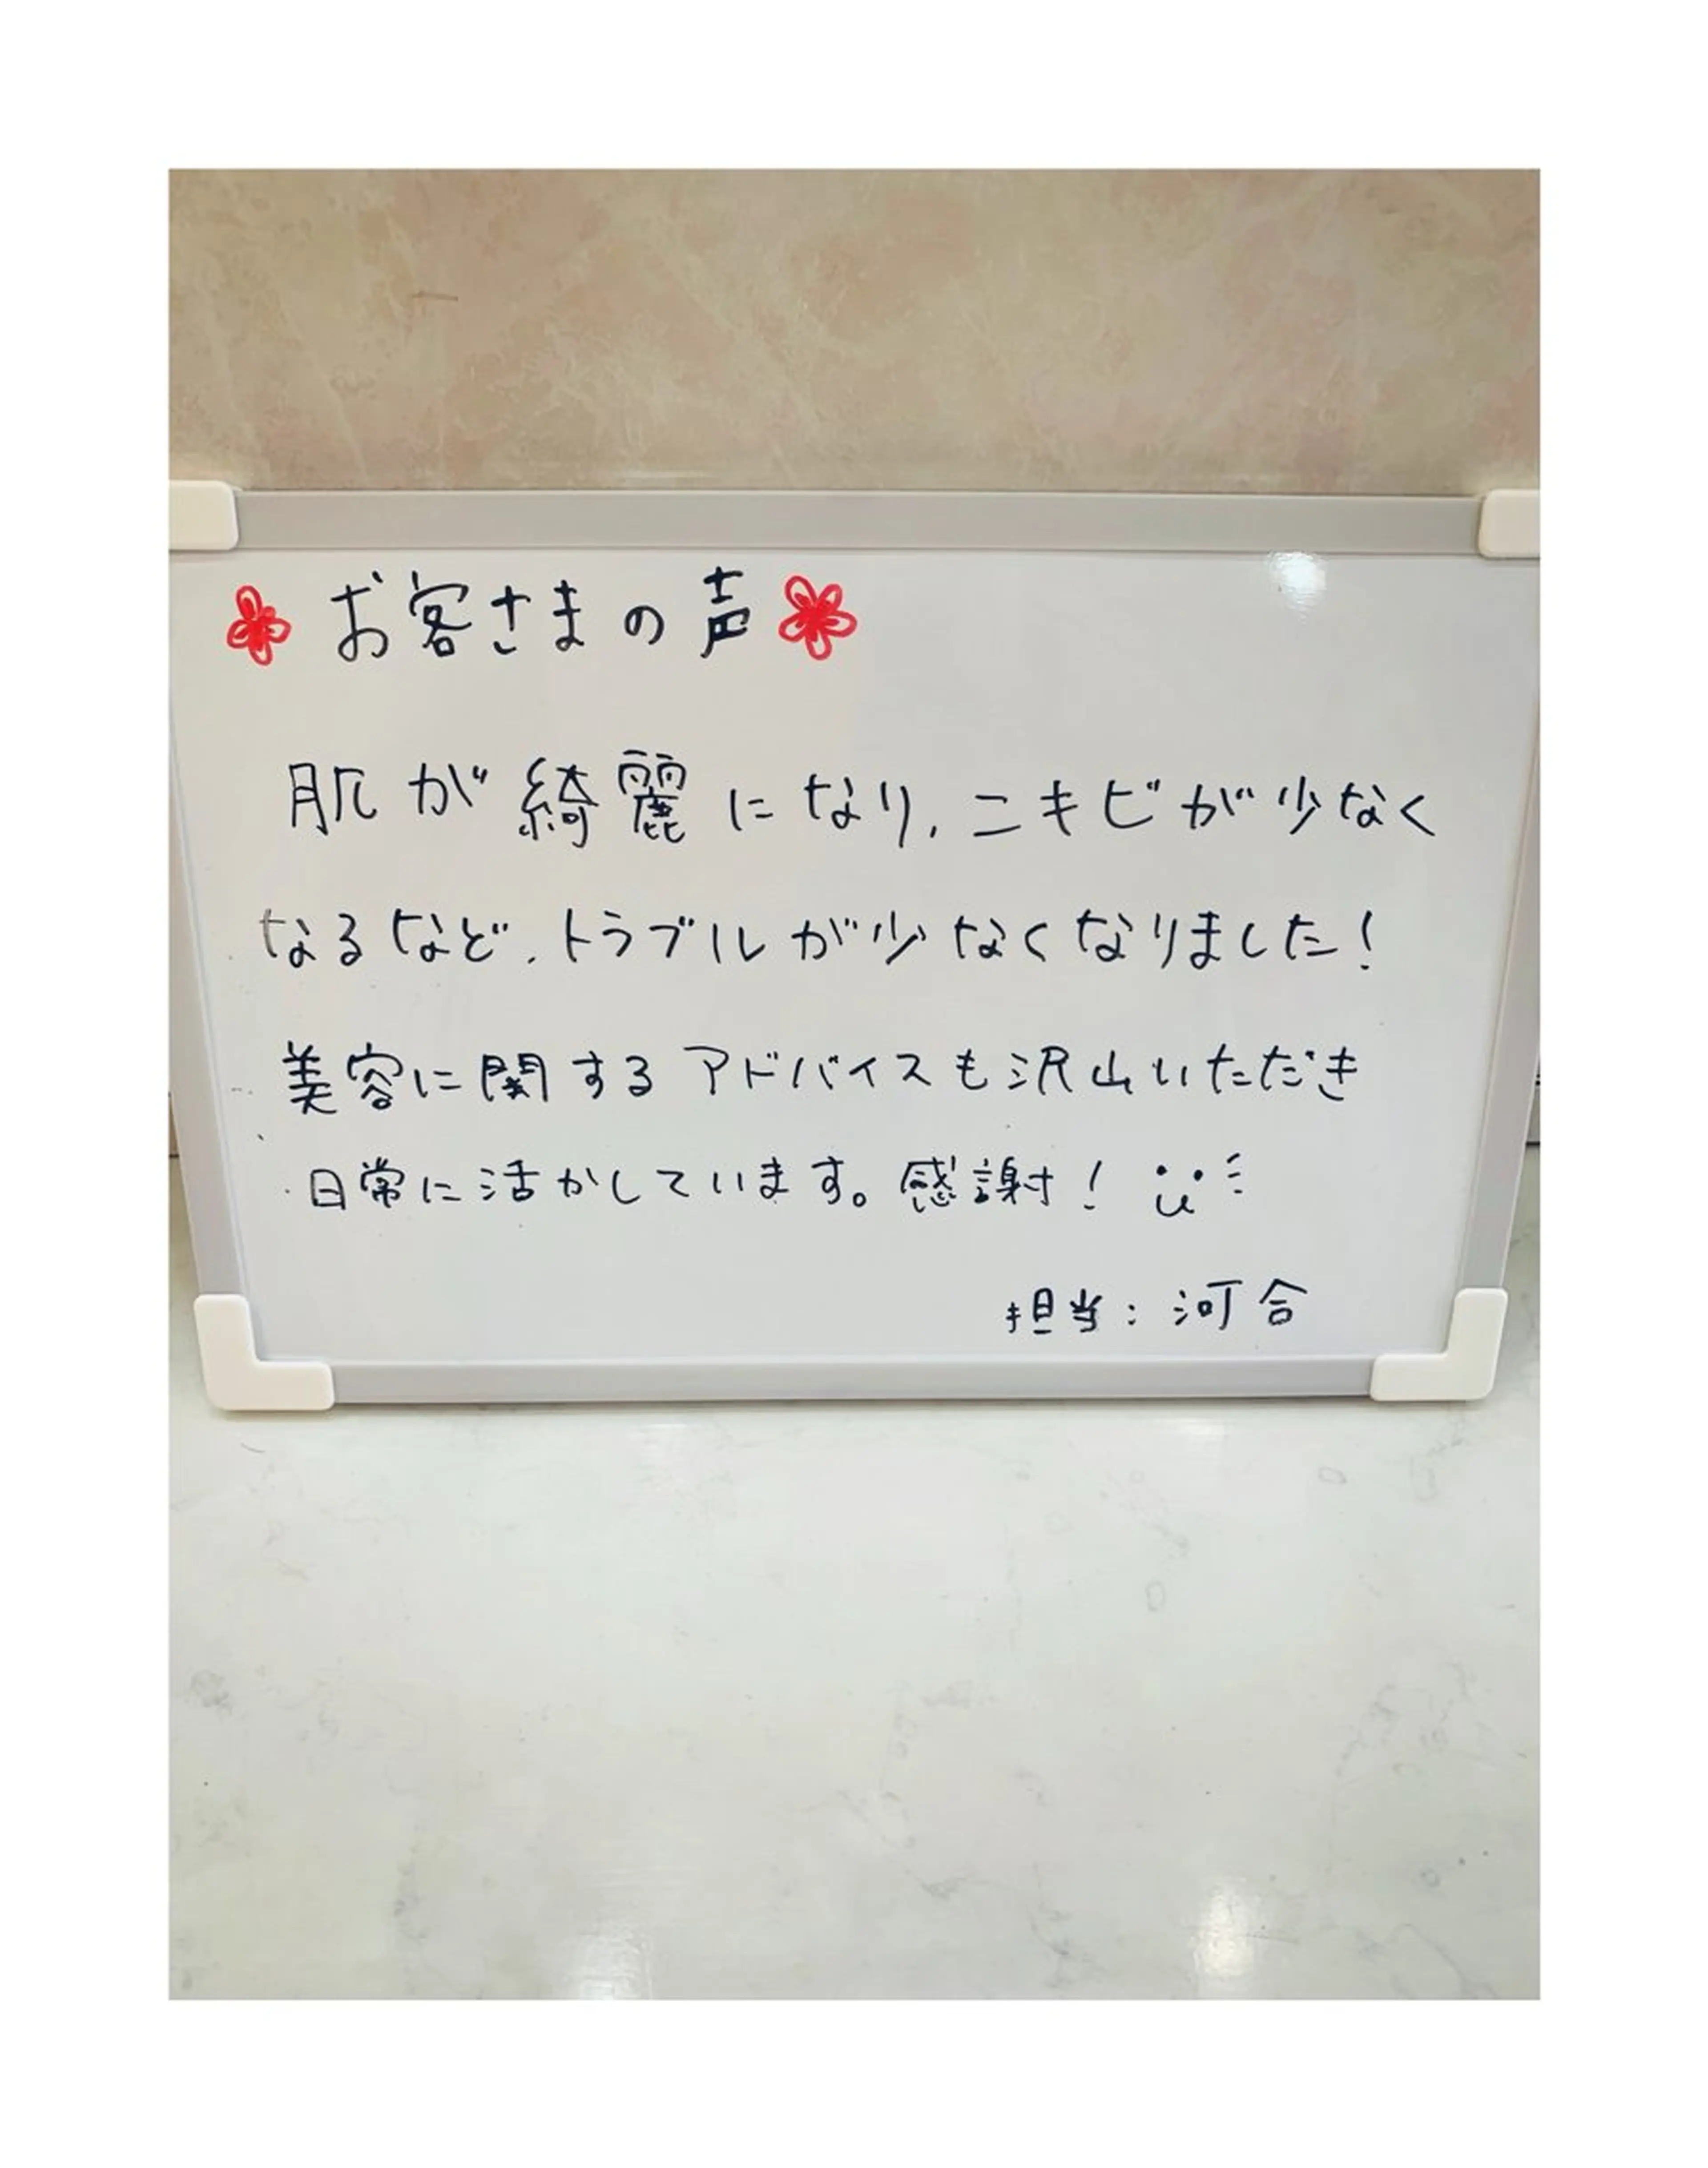 お客さまの声
肌が綺麗になり、ニキビが少なく
なるなど、トラブルが少なくなりました!
美容に関するアドバイスも沢山いただき
日常に活かしています。感謝!
担当:河合